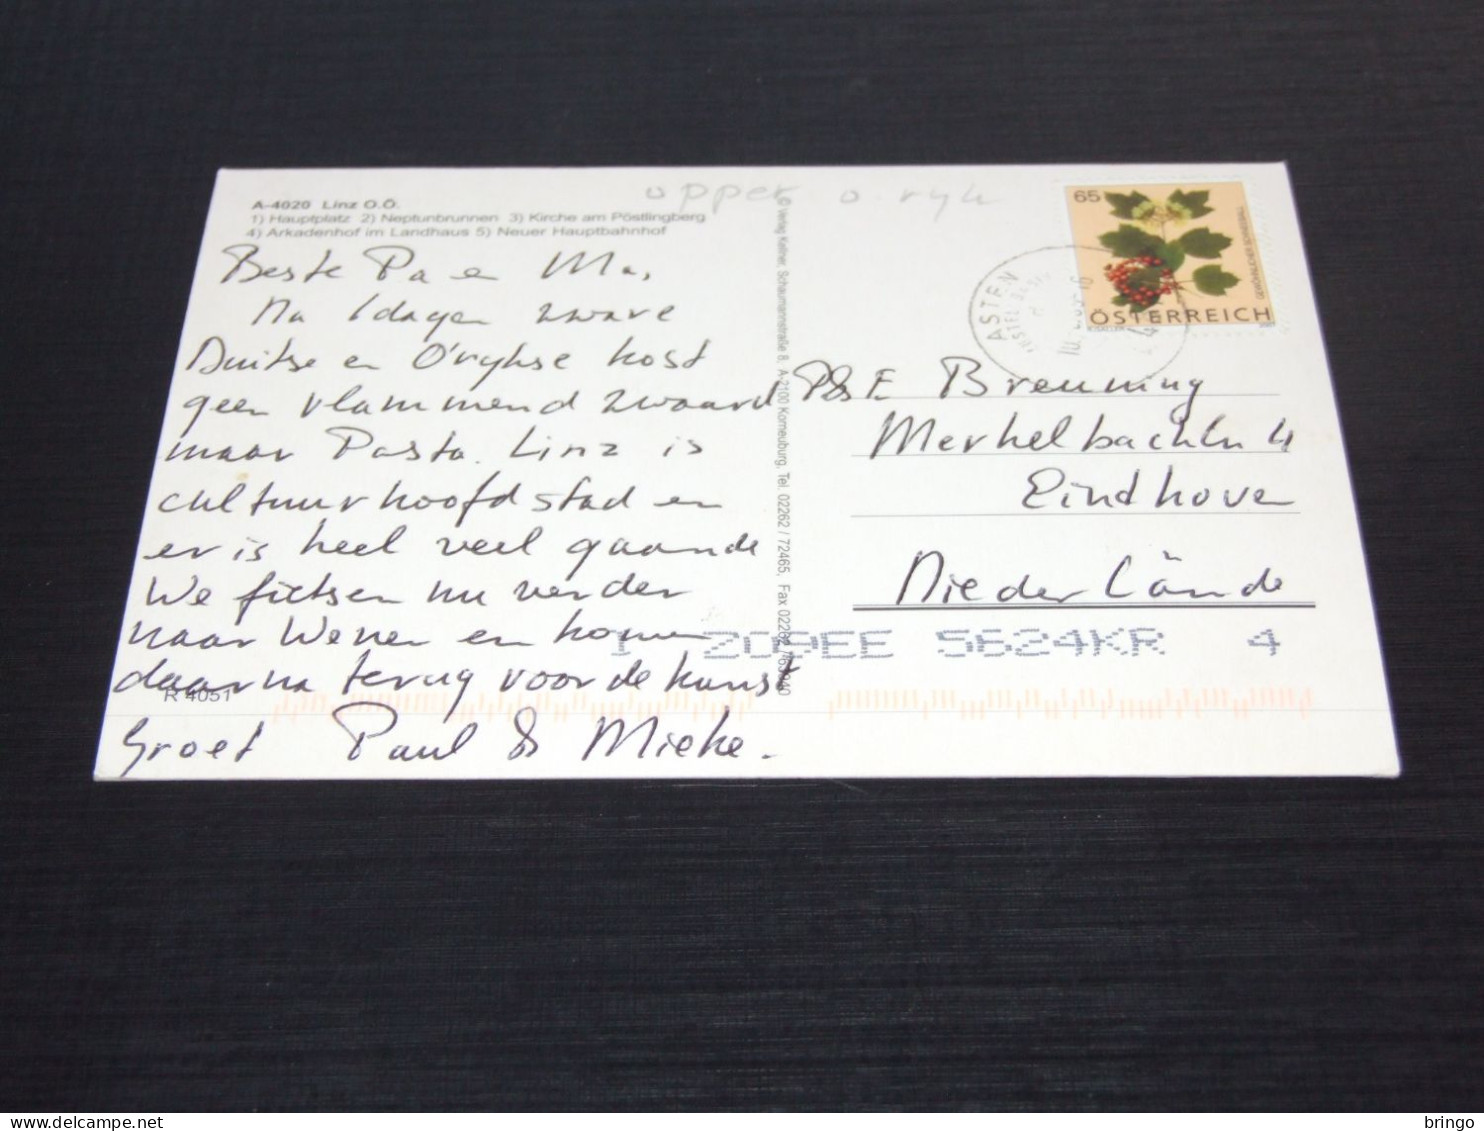 A-4020 Linz O.Ö.
1) Hauptplatz 2) Neptunbrunnen 3) Kirche am Pöstlingberg
4) Arkadenhof im Landhaus 5) Neuer Hauptbahnhof
Beste Pa en Ma,
Na 6 dagen zware
Duitse en O'rykse kost
geen vlammend zwaard
maar Pasta. Linz is
cultuurhoofdstad en
er is heel veel gaande
We fietsen nu verder
naar Wenen en komen
daarna terug voor de kunst
Groet Paul & Mieke.
R 4051
© Verlag Kellner, Schaumannstraße 8, A-2100 Korneuburg, Tel. 02262 / 72465, Fax 02262
opper o.ryk
65
GEWÖHNLICHER SCHNEEBALL
ÖSTERREICH
ASTEN
P&E Breuning
Merkelbachln 4
Eindhoven
Niederlände
1 209EE 5624KR 4
bringo